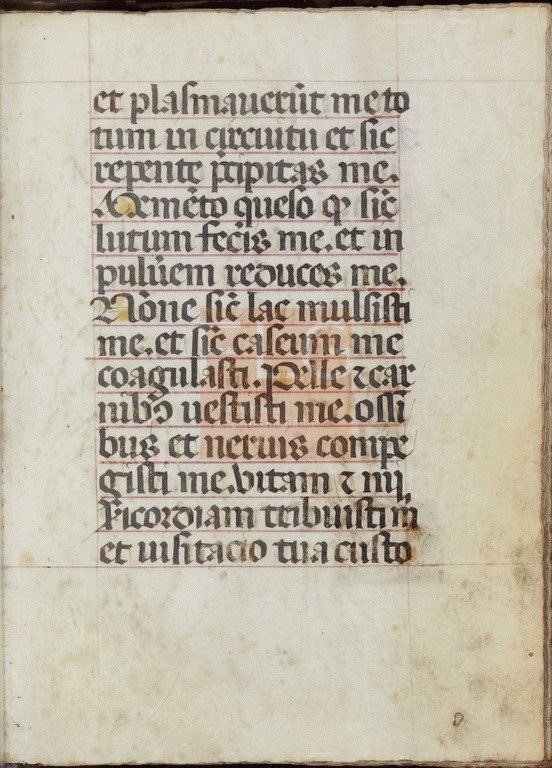 et plasmauerūt me to
tum in circuitu et sic
repente p̄cipitas me.
Memēto queso qꝫ sic̄
lutum fecis me. et in
puluīem reduces me.
Nōne sic̄ lac mulsisti
me. et sic̄ caseum me
coagulasti. Pelle ⁊ car
nibꝫ uestisti me. ossi
bus et neruis compe
gisti me. vitam ⁊ mi
s̄icordiam tribuisti m̄
et uisitacio tua custo
D